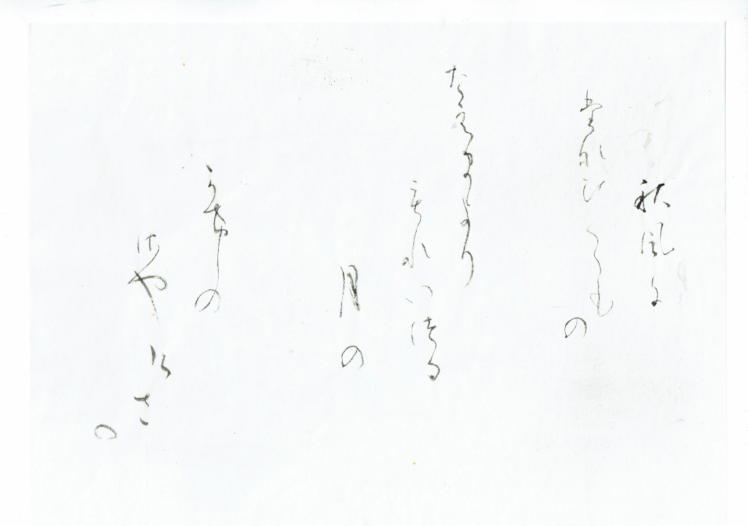 秋風に
たなびくもの
たえまより
もれいつる
月の
かけの
さやけさ